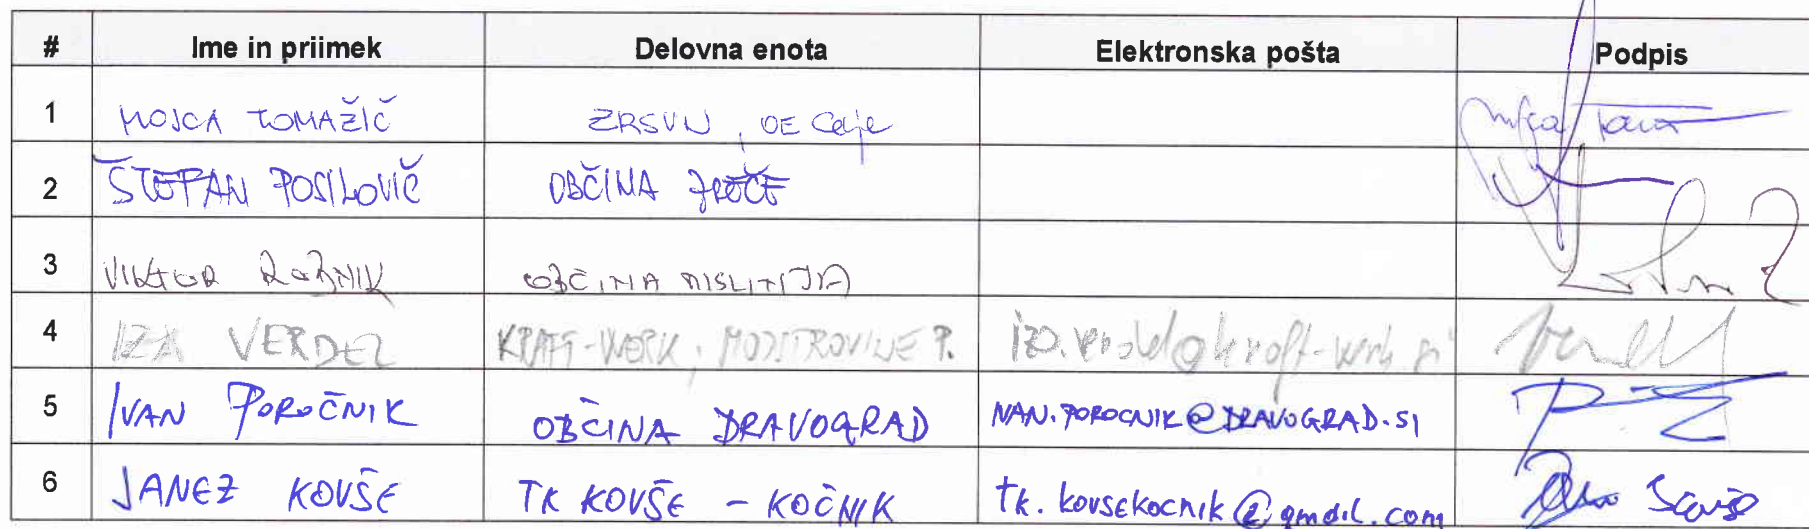 # Ime in priimek Delovna enota Elektronska pošta Podpis
1 MOJCA TOMAŽIČ ZRSVN, OE Celje
2 ŠTEFAN POSILOVIČ OBČINA ZREČE
3 VIKTOR ROBNIK OBČINA MISLINJA
4 IZA VERDEL KRAFT-WORK, PODPISOVANJE P. iza.verdel@kraft-work.si
5 IVAN POROČNIK OBČINA DRAVOGRAD IVAN.POROCNIK@DRAVOGRAD.SI
6 JANEZ KOVŠE TK KOVŠE - KOČNIK tk.kovsekocnik@gmail.com